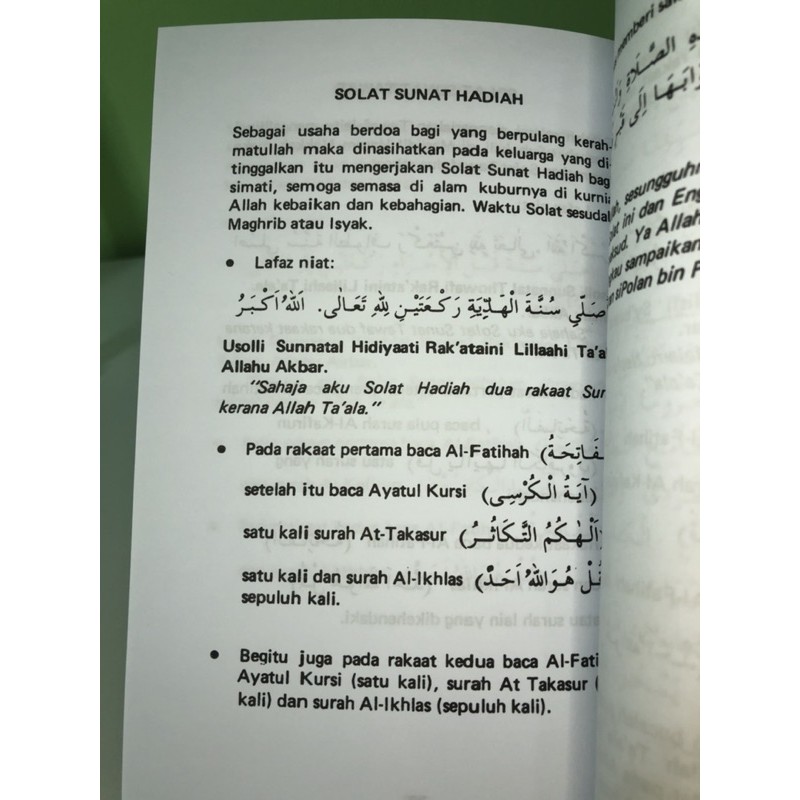 SOLAT SUNAT HADIAH
Sebagai usaha berdoa bagi yang berpulang kerah-
matullah maka dinasihatkan pada keluarga yang di-
tinggalkan itu mengerjakan Solat Sunat Hadiah bag
simati, semoga semasa di alam kuburnya di kurnia
Allah kebaikan dan kebahagian. Waktu Solat sesudah
Maghrib atau Isyak.
• Lafaz niat:
صَلِّي سُنَّةَ الْهَدِيَّةِ رَكْعَتَيْنِ لِلّٰهِ تَعَالٰى. اَللهُ اَكْبَرُ
Usolli Sunnatal Hidiyaati Rak'ataini Lillaahi Ta'a
Allahu Akbar.
"Sahaja aku Solat Hadiah dua rakaat Sun
kerana Allah Ta'ala."
• Pada rakaat pertama baca Al-Fatihah (لْفَاتِحَةُ
setelah itu baca Ayatul Kursi (آيَةُ الْكُرْسِى)
satu kali surah At-Takasur (اَلْهٰكُمُ التَّكَاثُرُ)
satu kali dan surah Al-Ikhlas (قُلْ هُوَ اللهُ اَحَدٌ)
sepuluh kali.
• Begitu juga pada rakaat kedua baca Al-Fati
Ayatul Kursi (satu kali), surah At Takasur (
kali) dan surah Al-Ikhlas (sepuluh kali).
memberi
الصَّلَاةِ
اِلٰى
sesungguhn
at ini dan Eng
sud. Ya Allah
kau sampaikan
n siPolan bin F